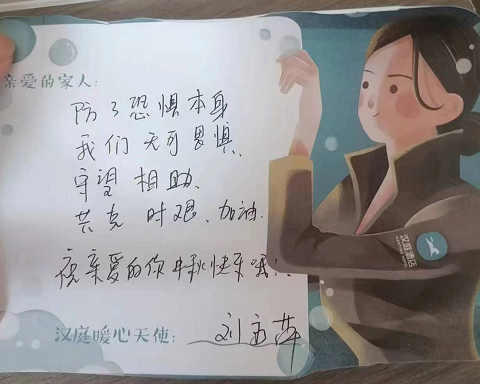 亲爱的家人:
防了恐惧本身
我们无可畏惧、
守望相助、
共克时艰、加油.
亲爱的你中秋快乐哦!!
汉庭暖心天使:
汉庭酒店